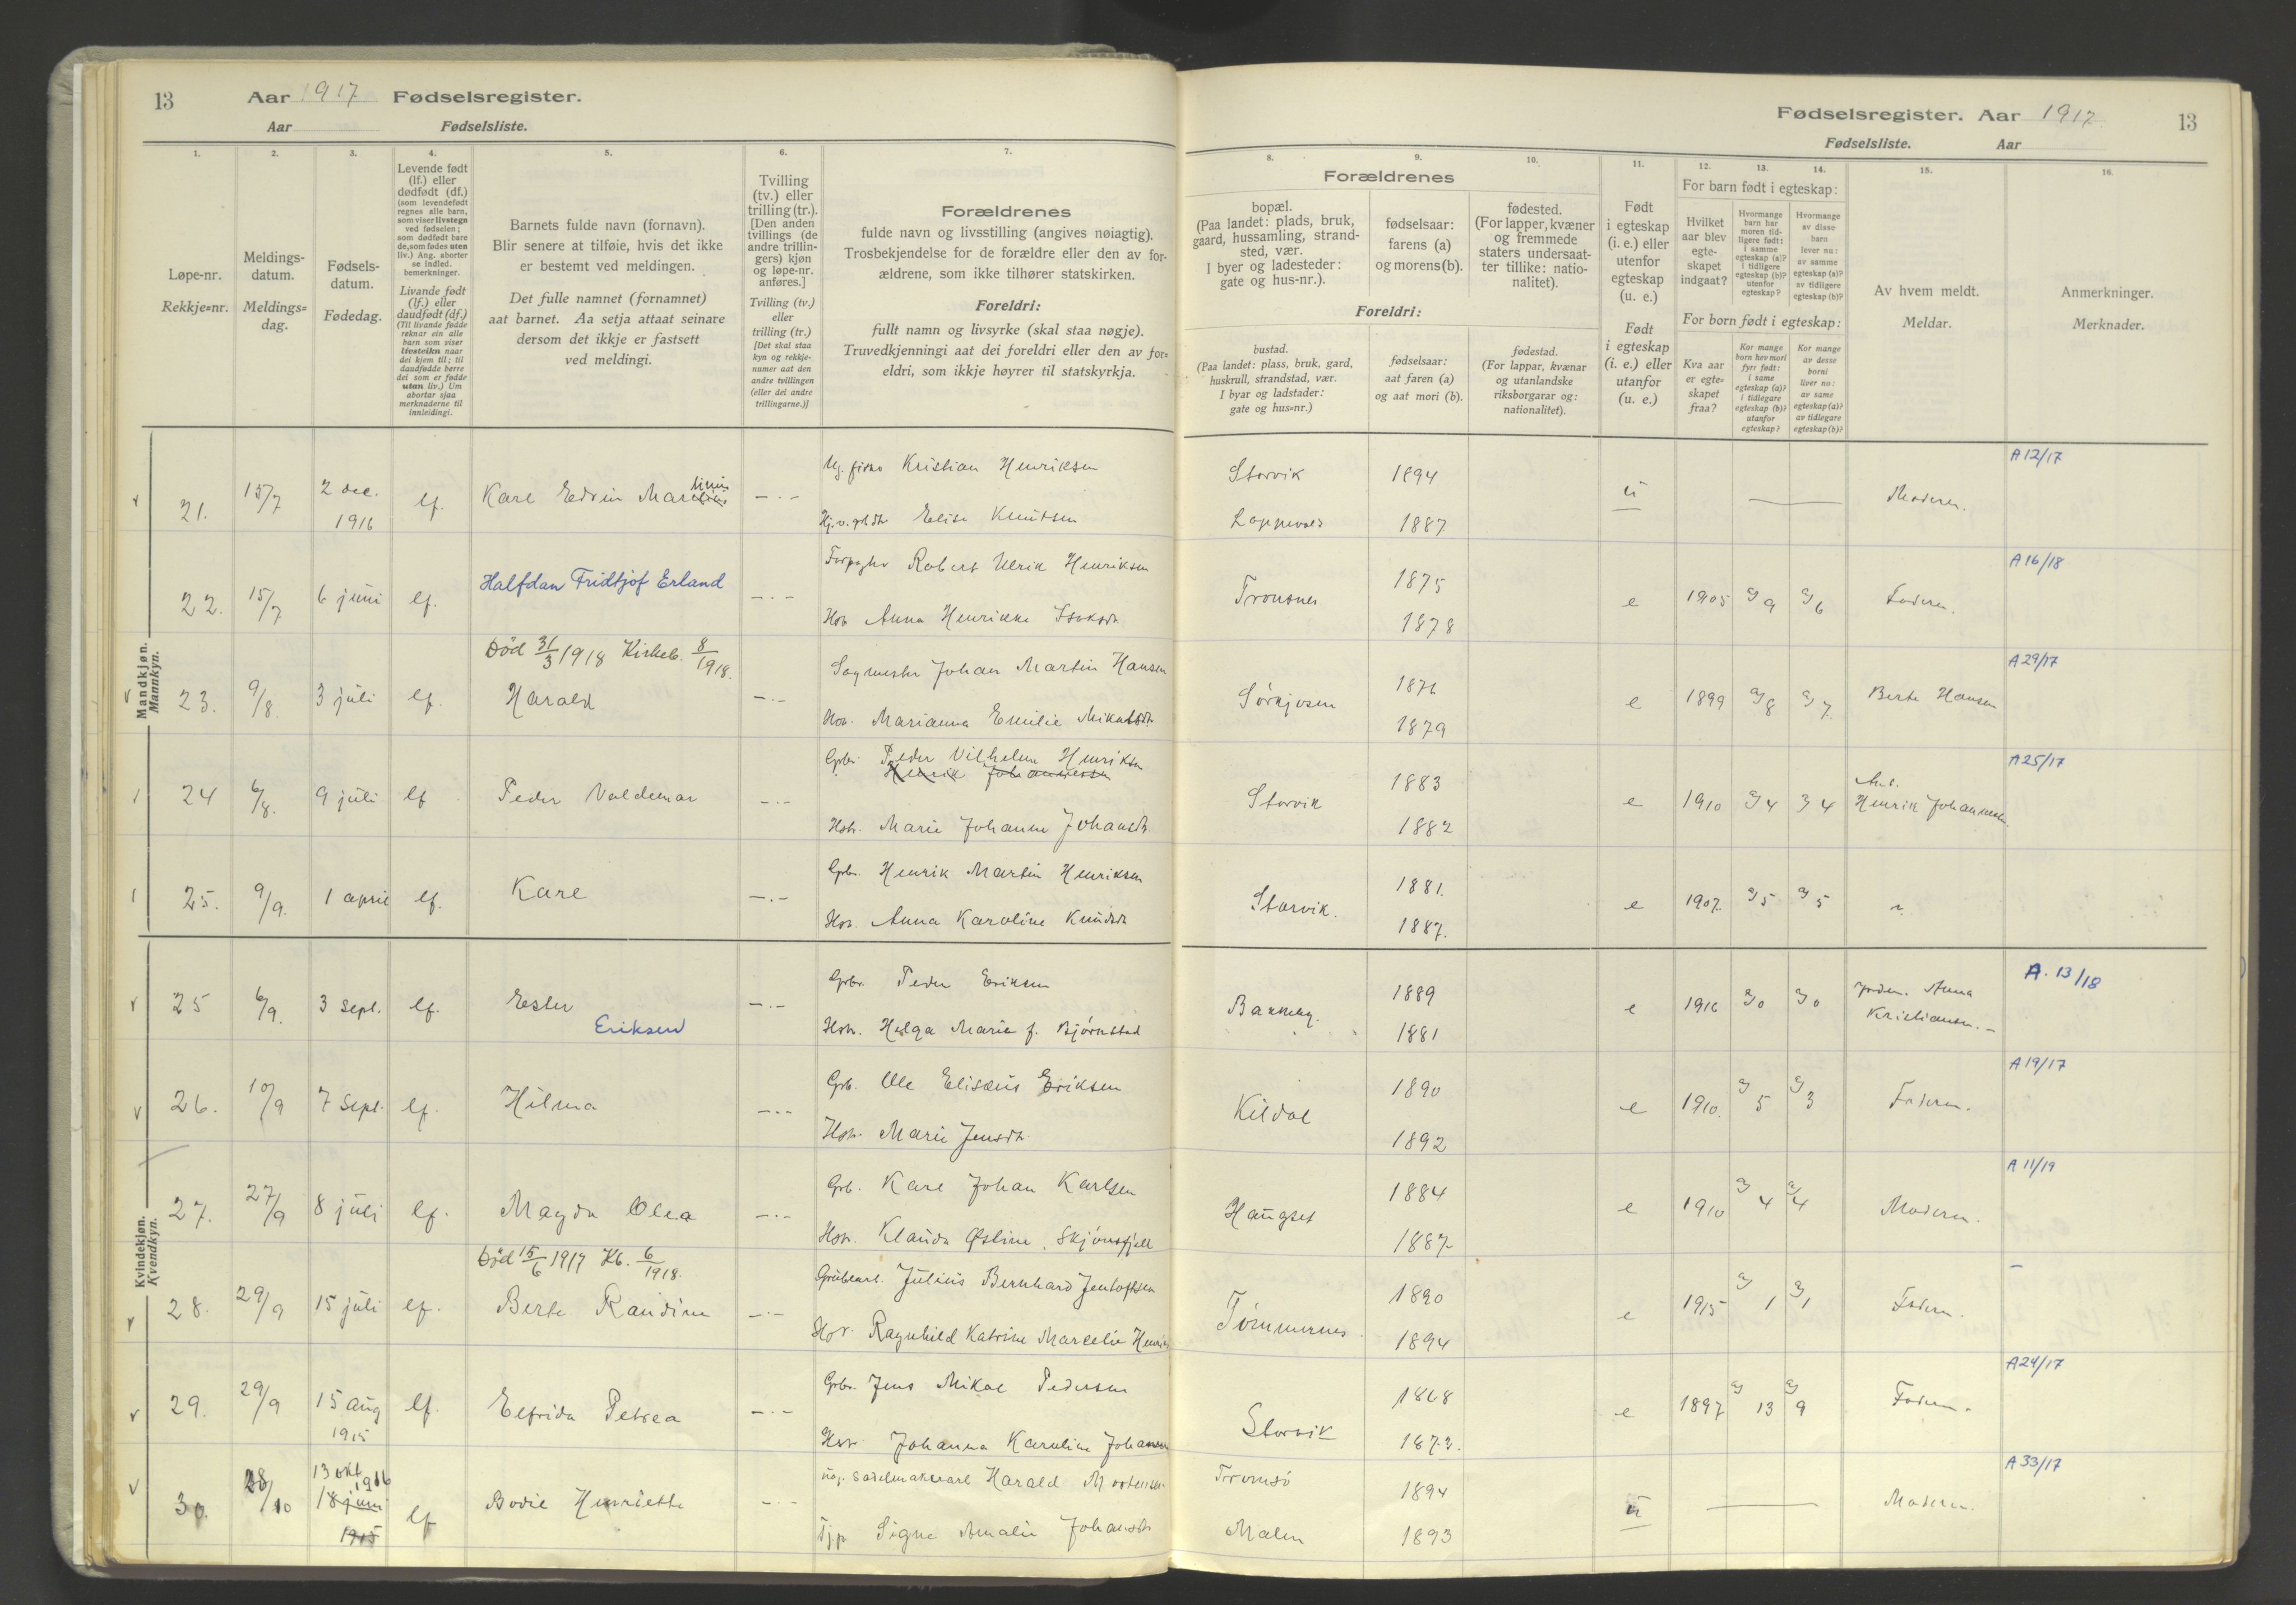 13 Aar 1917 Fødselsregister.
Aar Fødselsliste.
Fødselsregister. Aar 1917. 13
Fødselsliste. Aar
1. 2. 3. 4. 5. 6. 7. 8. 9. 10. 11. 12. 13. 14. 15. 16.
Løpe-nr.
Rekkje=nr.
Meldings-
datum.
Meldings=
dag.
Fødsels-
datum.
Fødedag.
Levende født
(lf.) eller
dødfødt (df.)
(som levendefødt
regnes alle barn,
som viser livstegn
ved fødselen;
som dødfødt bare
de, som fødes uten
liv.) Ang. aborter
se indled.
bemerkninger.
Livande født
(lf.) eller
daudfødt (df.)
(Til livande fødde
reknar ein alle
barn som viser
livsteikn naar
dei kjem til; til
daudfødde berre
dei som er fødde
utan liv.) Um
abortar sjaa
merknaderne til
innleidingi.
Barnets fulde navn (fornavn).
Blir senere at tilføie, hvis det ikke
er bestemt ved meldingen.
Det fulle namnet (fornamnet)
aat barnet. Aa setja attaat seinare
dersom det ikkje er fastsett
ved meldingi.
Tvilling
(tv.) eller
trilling (tr.).
[Den anden
tvillings (de
andre trillin-
gers) kjøn
og løpe-nr.
anføres.]
Tvilling (tv.)
eller
trilling (tr.)
[Det skal staa
kyn og rekkje-
numer aat den
andre tvillingen
(eller dei andre
trillingarne.)]
Forældrenes
fulde navn og livsstilling (angives nøiagtig).
Trosbekjendelse for de forældre eller den av for-
ældrene, som ikke tilhører statskirken.
Foreldri:
fullt namn og livsyrke (skal staa nøgje).
Truvedkjenningi aat dei foreldri eller den av for=
eldri, som ikkje høyrer til statskyrkja.
Forældrenes
bopæl.
(Paa landet: plads, bruk,
gaard, hussamling, strand-
sted, vær.
I byer og ladesteder:
gate og hus-nr.).
fødselsaar:
farens (a)
og morens (b).
fødested.
(For lapper, kvæner
og fremmede
staters undersaat-
ter tillike: natio-
nalitet).
Foreldri:
bustad.
(Paa landet: plass, bruk, gard,
huskrull, strandstad, vær.
I byar og ladstader:
gate og hus=nr.)
fødselsaar:
aat faren (a)
og aat mori (b).
fødestad.
(For lappar, kvænar
og utanlandske
riksborgarar og:
nationalitet).
Født
i egteskap
(i. e.) eller
utenfor
egteskap
(u. e.)
Født
i egteskap
(i. e.) eller
utanfor
egteskap
(u. e.)
For barn født i egteskap:
Hvilket
aar blev
egte-
skapet
indgaat?
Hvormange
barn har
moren tid-
ligere født:
i samme
egteskap (a)?
i tidligere
egteskap (b)?
utenfor
egteskap?
Hvormange
av disse
barn
lever nu:
av samme
egteskap (a)?
av tidligere
egteskap (b)?
For born født i egteskap:
Kva aar
er egte=
skapet
fraa?
Kor mange
born hev mori
fyrr født:
i same
egteskap (a)?
i tidlegare
egteskap (b)?
utanfor
egteskap?
Kor mange
av desse
borni
liver nu:
av same
egteskap (a)?
av tidlegare
egteskap (b)?
Av hvem meldt.
Meldar.
Anmerkninger.
Merknader.
Mandkjøn.
Mannkyn.
21. 15/7 2 dec. 1916 lf. Karl Edvin -.- Ug. fisker Kristian Henriksen
Elise Knutsen
Storvik 1894
1887
u Moderen. A 12/17
22. 15/7 6 juni lf. Halfdan Fridtjof Erland -.- Robert Ulrik Henriksen
Hstr. Anna Henrikke Isaksdr.
Tronsnes 1875
1878
e 1905 a) 9 a) 6 Faderen. A 16/18
Död 31/3 1918 Kirkeb. 8/1918.
23. 9/8. 3 juli lf. Harald -.- Sagmester Johan Martin Hansen
Hstr. Marianna Emilie
Sørkjosen 1876
1879
e 1899 a) 8 a) 7. Berte Hansen A 29/17
24 6/8. 9 juli lf Peder Valdemar -.- Gbr. Peder Vilhelm Henriksen
Henrik Johannesen
Hstr. Marie Johanne Johansdr.
Storvik 1883
1882
e 1910 a) 4 a) 4 Henrik Johannesen. A 25/17
25. 9/9. 1 april lf. Karl -.- Gbr. Henrik Martin Henriksen
Hstr. Anna Karoline Knudsdr
Storvik. 1881.
1887.
e 1907. a) 5 a) 5 "
Kvindekjøn.
Kvendkyn.
25 6/9. 3 Sept. lf. Ester
Eriksen -.- Gbr. Peder Eriksen
Hstr. Helga Marie f. Bjørnstad
Bakkeby. 1889
1881
e 1916 a) 0 a) 0 jordm. Anna
Kristiansen. A. 13/18
26. 10/9 7 Sept. lf. Hilma -.- Gbr. Ole Elisæus Eriksen
Hstr. Marie Jensdr.
Kildal 1890
1892
e 1910. a) 5 a) 3 Faderen. A 19/17
27. 27/9 8 juli lf. Magda Olea -.- Gbr. Karl Johan Karlsen
Hstr. Klauda Østine Skjönsfjell
Haugset 1884
1887
e 1910 a) 4 a) 4 Moderen. A 11/19
Död 15/6 1917 Kb. 6/1918.
28. 29/9 15 juli lf. Berte Randine -.- Grubearb. Julius Bernhard Jentoftsen
Hstr. Ragnhild Katrine Marcelie
Tömmernes. 1890
1894
e 1915 a) 1 a) 1 Faderen. -
29. 29/9 15 aug 1915 lf. Elfrida Petrea -.- Gbr. Jens Mikal Pedersen
Hstr. Johanna Karoline Johansen
Storvik 1868
1872.
e 1897 a) 13 a) 9 Faderen. A 24/17
30. 28/10 13 okt 1916
18 juni
1915 lf Bodil Henriette -.- ug. sadelmakerarb Harald
Tjp Signe Amalie Johansdr
Tromsö 1894
Malen 1893
u Moderen. A 33/17